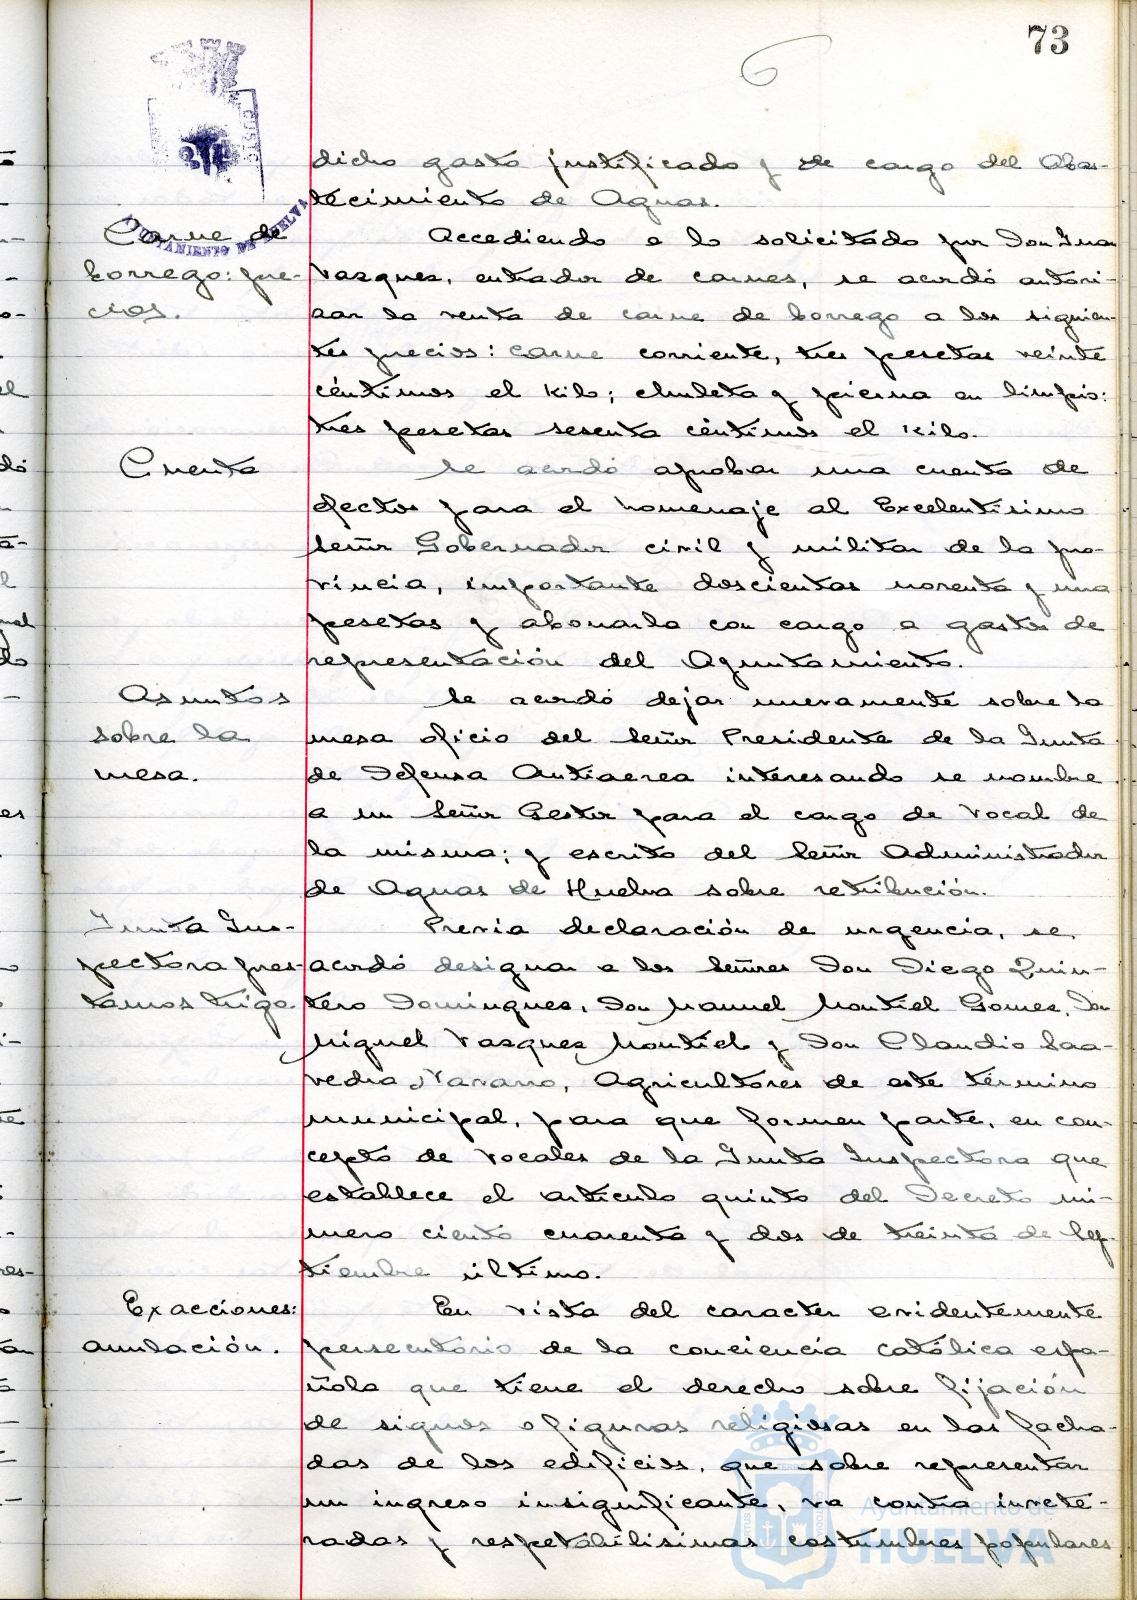 73
dicho gasto justificado y de cargo del Abas-
tecimiento de Aguas.
AYUNTAMIENTO DE HUELVA
Carne de
borrego: pre-
cios.
Accediendo a lo solicitado por Don Juan
Vasques, entrador de carnes, se acordó autori-
zar la venta de carne de borrego a los siguien-
tes precios: carne corriente, tres pesetas veinte
céntimos el kilo; chuleta y pierna en limpio:
tres pesetas sesenta céntimos el kilo.
Cuenta
Se acordó aprobar una cuenta de
efectos para el homenaje al Excelentísimo
Señor Gobernador civil y militar de la pro-
vincia, importante doscientas noventa y una
pesetas y abonarla con cargo a gastos de
representación del Ayuntamiento.
Asuntos
sobre la
mesa.
Se acordó dejar nuevamente sobre la
mesa oficio del Señor Presidente de la Junta
de Defensa Antiaerea interesando se nombre
a un Señor Gestor para el cargo de Vocal de
la misma; y escrito del Señor Administrador
de Aguas de Huelva sobre retribución.
Junta Ins-
pectora pres-
tamos trigo.
Previa declaración de urgencia, se
acordó designar a los Señores Don Diego Quin-
tero Domingues, Don Manuel Montiel Gomes, Don
Miguel Vasques Montiel y Don Claudio Saa-
vedra Navarro, Agricultores de este término
municipal, para que formen parte, en con-
cepto de Vocales de la Junta Inspectora que
establece el articulo quinto del Decreto nú-
mero ciento cuarenta y dos de treinta de Sep-
tiembre último.
Exacciones:
anulación.
En vista del caracter evidentemente
persecutorio de la conciencia católica espa-
ñola que tiene el derecho sobre fijación
de signos o figuras religiosas en las facha-
das de los edificios, que sobre representar
un ingreso insignificante, va contra invete-
radas y respetabilisimas costumbres populares
Ayuntamiento de
HUELVA